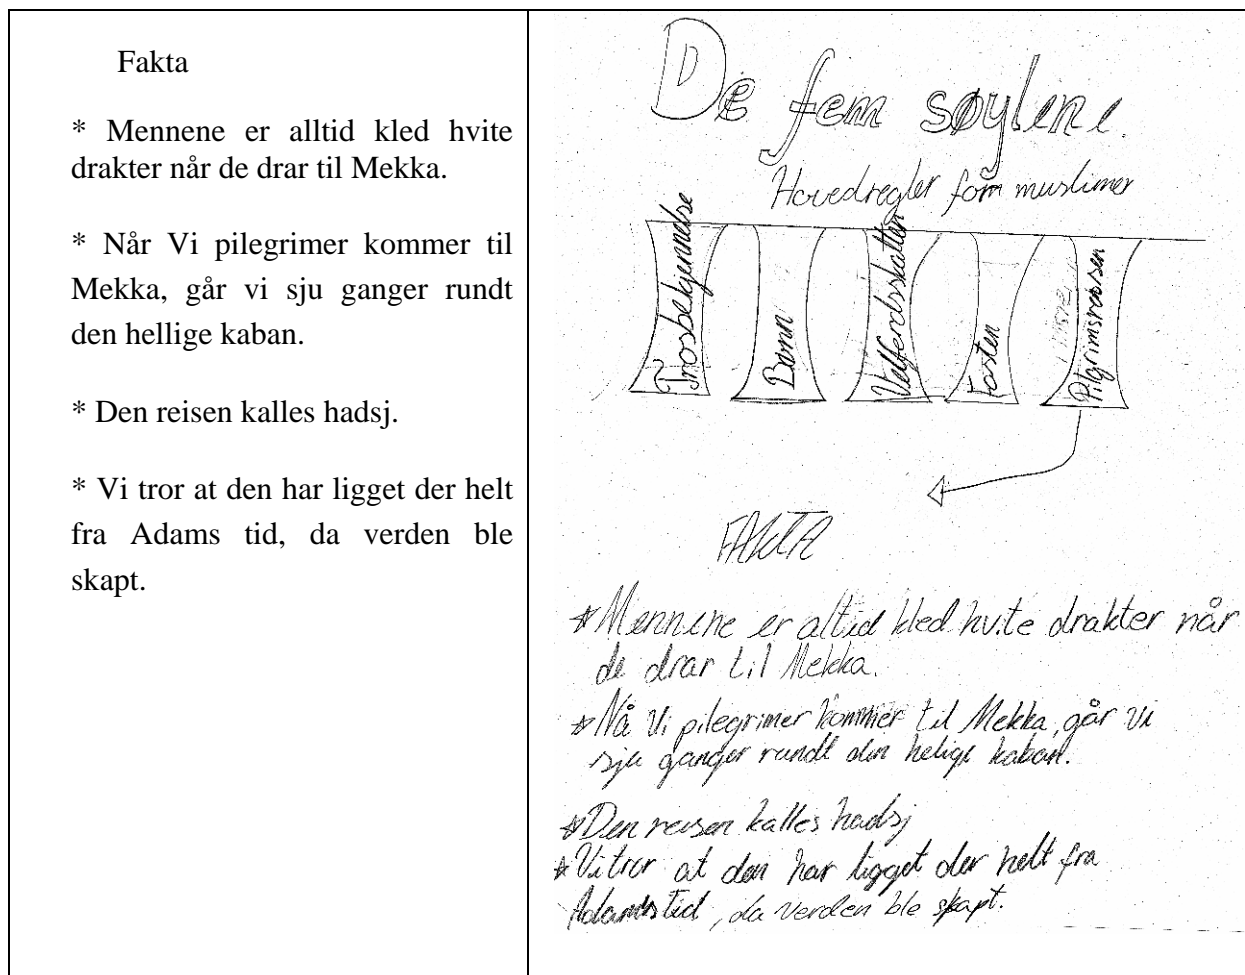 Fakta
* Mennene er alltid kled hvite
drakter når de drar til Mekka.
* Når Vi pilegrimer kommer til
Mekka, går vi sju ganger rundt
den hellige kaban.
* Den reisen kalles hadsj.
* Vi tror at den har ligget der helt
fra Adams tid, da verden ble
skapt.
De fem søylene.
Hovedregler fom muslimer
Trosbekjennelse
Bønn
Velferdsskatten
Fasten
Pilgrimsreisen
FAKTA
* Mennene er altid kled hvite drakter når
de drar til Mekka.
* Nå Vi pilegrimer kommer til Mekka, går vi
sju ganger rundt den helige kaban.
* Den reisen kalles hadsj
* Vi tror at den har ligget der helt fra
Adams tid, da verden ble skapt.